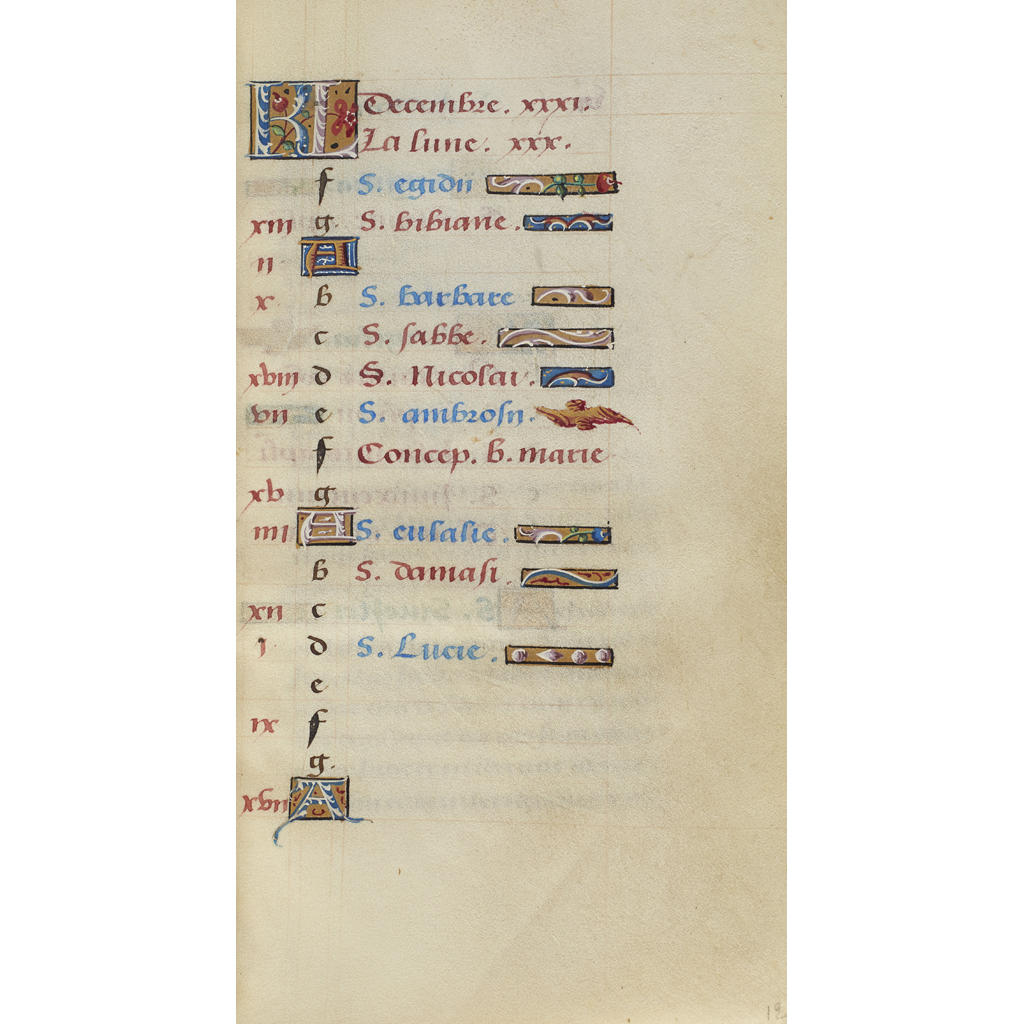 KL Decembre. xxxi.
La lune. xxx.
f S. egidii
xiii g. S. bibiane.
ii A
x b S. barbare
c S. sabbe.
xviii d S. Nicolai.
vii e S. ambrosii.
f Concep. b. marie
xv g
iiii A S. eulalie.
b S. damasi.
xii c
i d S. Lucie.
e
ix f
g.
xvii A
12